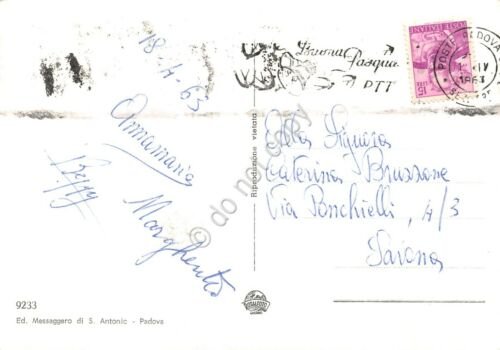 18-4-63
Annamaria
Beppy
Margherita
Buona Pasqua
PTT
POSTE PADOVA
1963
POSTE ITALIANE
LIRE 15
Alla Signora
Caterina Bruzzone
Via Ponchielli, 4/3
Savona
Riproduzione vietata
do not copy
9233
Ed. Messaggero di S. Antonio - Padova